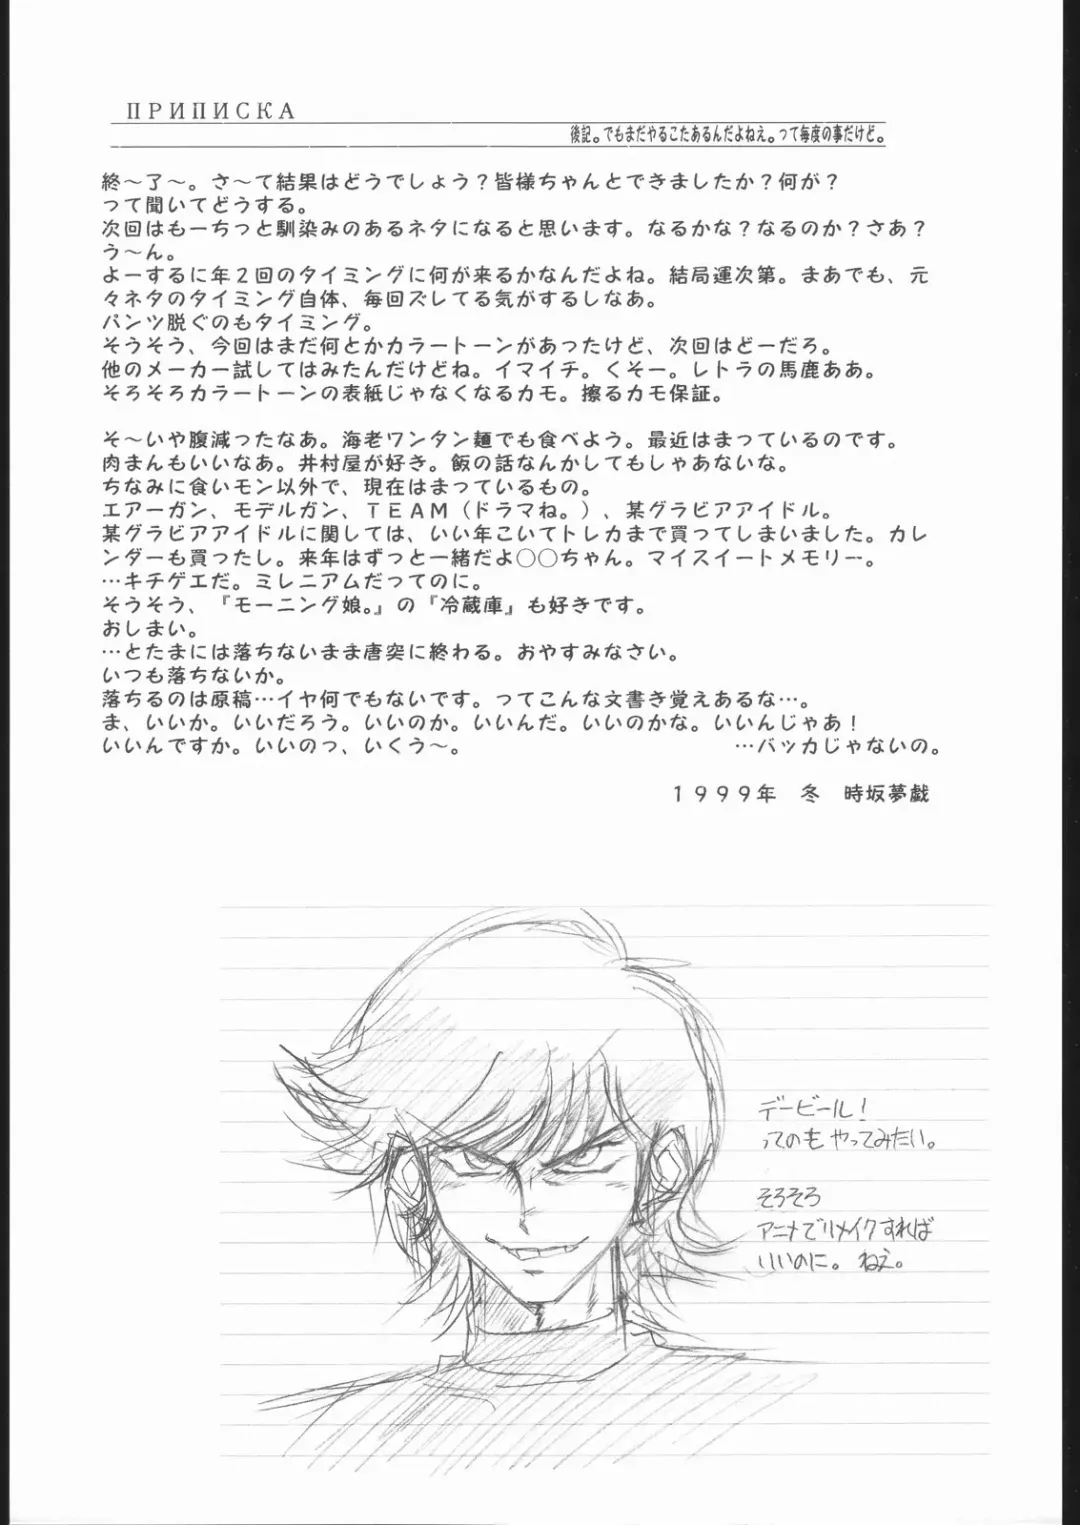 ПРИПИСКА
後記。でもまだやるこたあるんだよねえ。って毎度の事だけど。
終～了～。さ～て結果はどうでしょう？皆様ちゃんとできましたか？何が？
って聞いてどうする。
次回はもーちっと馴染みのあるネタになると思います。なるかな？なるのか？さあ？
う～ん。
よーするに年２回のタイミングに何が来るかなんだよね。結局運次第。まあでも、元
々ネタのタイミング自体、毎回ズレてる気がするしなあ。
パンツ脱ぐのもタイミング。
そうそう、今回はまだ何とかカラートーンがあったけど、次回はどーだろ。
他のメーカー試してはみたんだけどね。イマイチ。くそー。レトラの馬鹿ああ。
そろそろカラートーンの表紙じゃなくなるカモ。擦るカモ保証。
そ～いや腹減ったなあ。海老ワンタン麺でも食べよう。最近はまっているのです。
肉まんもいいなあ。井村屋が好き。飯の話なんかしてもしゃあないな。
ちなみに食いモン以外で、現在はまっているもの。
エアーガン、モデルガン、ＴＥＡＭ（ドラマね。）、某グラビアアイドル。
某グラビアアイドルに関しては、いい年こいてトレカまで買ってしまいました。カレ
ンダーも買ったし。来年はずっと一緒だよ○○ちゃん。マイスイートメモリー。
…キチゲエだ。ミレニアムだってのに。
そうそう、『モーニング娘。』の『冷蔵庫』も好きです。
おしまい。
…とたまには落ちないまま唐突に終わる。おやすみなさい。
いつも落ちないか。
落ちるのは原稿…イヤ何でもないです。ってこんな文書き覚えあるな…。
ま、いいか。いいだろう。いいのか。いいんだ。いいのかな。いいんじゃあ！
いいんですか。いいのっ、いくう～。　…バッカじゃないの。
１９９９年　冬　時坂夢戯
デービール！
ってのもやってみたい。
そろそろ
アニメでリメイクすれば
いいのに。ねえ。